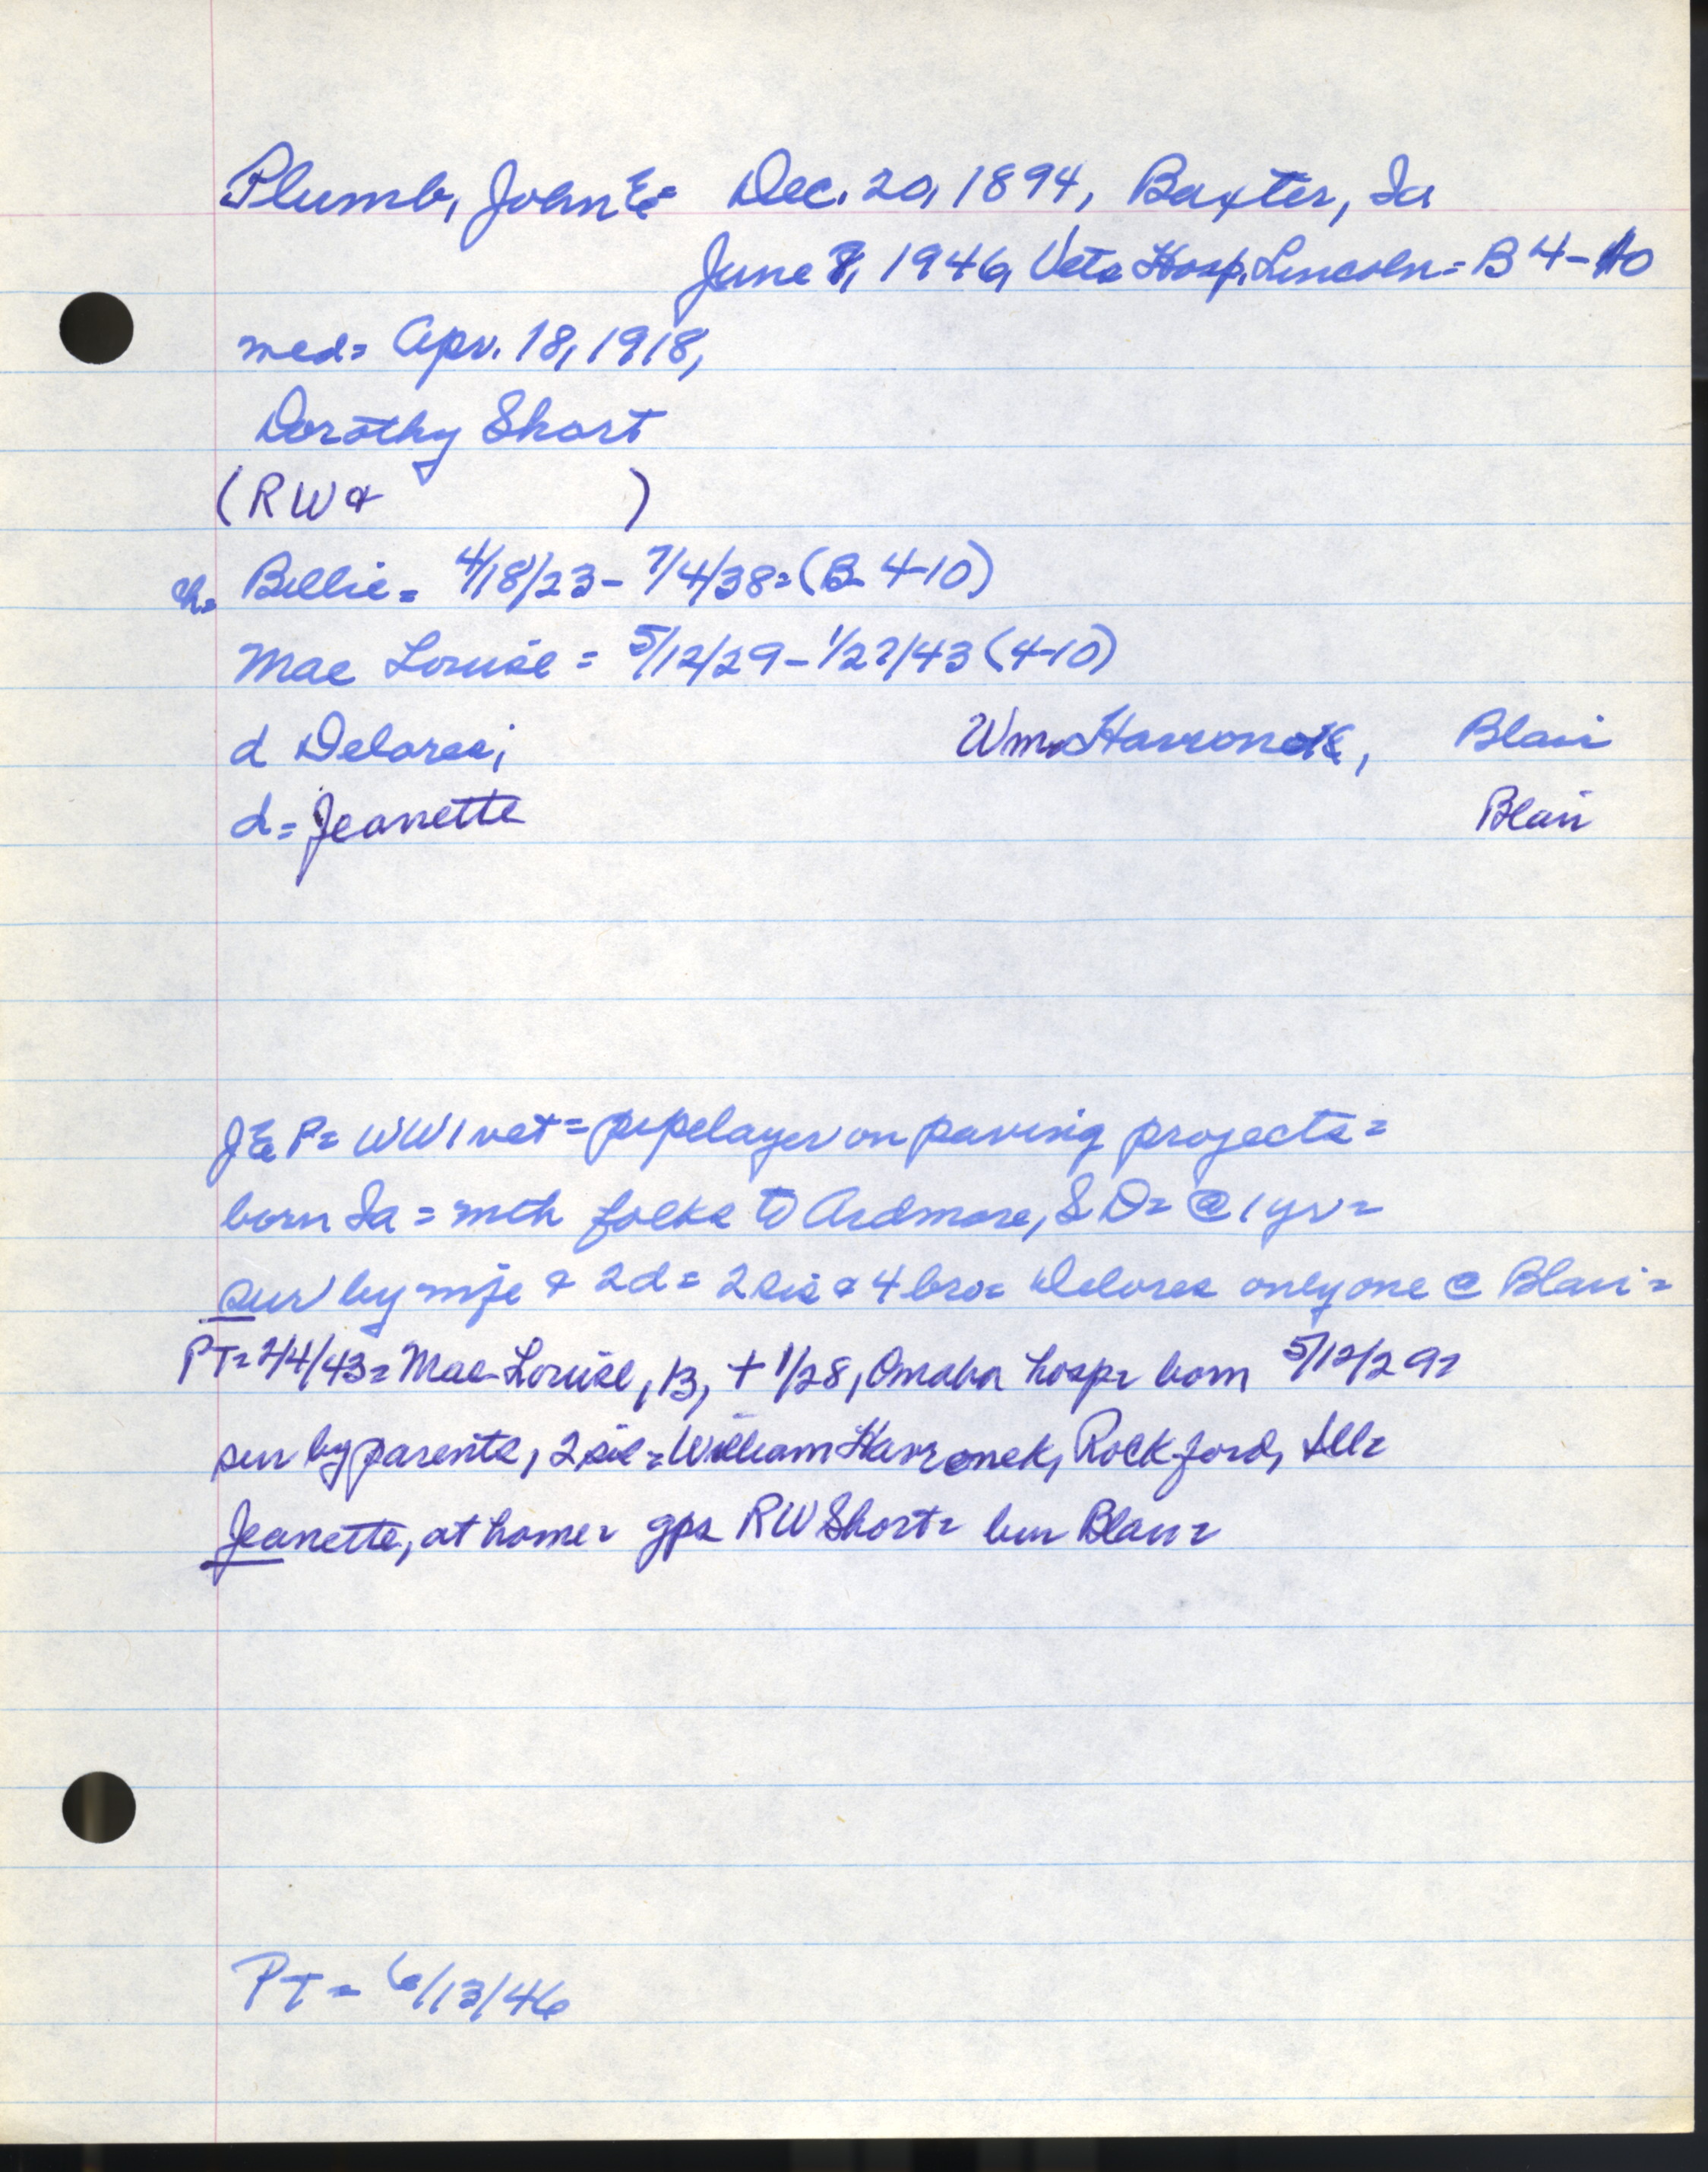 Plumb, John E= Dec. 20, 1894, Baxter, Ia
June 8, 1946, Vets Hosp, Lincoln = B 4-10
med= Apr. 18, 1918,
Dorothy Short
(RW & )
ch= Billie = 4/18/23 - 7/4/38 = (B 4-10)
Mae Louise = 5/12/29 - 1/2?/43 (4-10)
d Delores; Wm Havronek, Blair
d= Jeanette Blair
JEP= WW1 vet = pipelayer on paving projects =
born Ia = wth folks to Ardmore, SD= @ 1 yr =
sur by wife & 2d = 2 sis & 4 bro= Delores only one @ Blair =
PT= 2/4/43= Mae Louise, 13, + 1/28, Omaha hosp= born 5/12/29=
sur by parents, 2 sis = William Havronek, Rockford, Ill=
Jeanette, at home= gps RW Short= bur Blair=
PT = 6/13/46